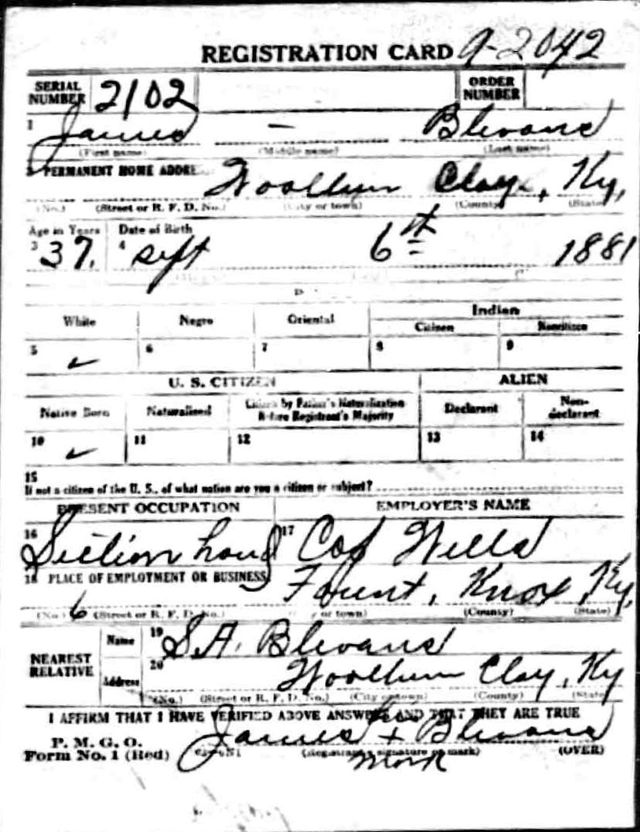 REGISTRATION CARD 9-2042
SERIAL NUMBER 2102 ORDER NUMBER
1 James — Blevans
(First name) (Middle name) (Last name)
PERMANENT HOME ADDRE Woollum Clay, Ky,
(No.) (Street or R. F. D. No.) (City or town) (County) (State)
Age in Years Date of Birth
3 37. 4 Sept 6th 1881
White Negro Oriental Indian
Citizen Noncitizen
5 ✓ 6 7 8 9
U. S. CITIZEN ALIEN
Native Born Naturalized Citizen by Father's Naturalization Before Registrant's Majority Declarant Non-declarant
10 ✓ 11 12 13 14
15
If not a citizen of the U. S., of what nation are you a citizen or subject?
PRESENT OCCUPATION EMPLOYER'S NAME
16 Section hand 17 Wells
18 PLACE OF EMPLOYMENT OR BUSINESS Knox Ky,
(No.) 6 (Street or R. F. D. No.) (City or town) (County) (State)
NEAREST RELATIVE Name 19 S.A. Blevans
Address 20 Woollum Clay, Ky
(No.) (Street or R. F. D. No.) (City or town) (County) (State)
I AFFIRM THAT I HAVE VERIFIED ABOVE ANSWERS AND THAT THEY ARE TRUE
P. M. G. O.
Form No. 1 (Red) James + Blevans
(Registrant's signature or mark) (OVER)
mark